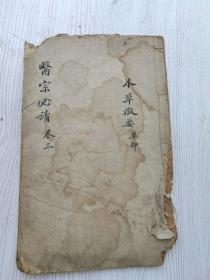 本草徵要 草部
醫宗必讀 卷三